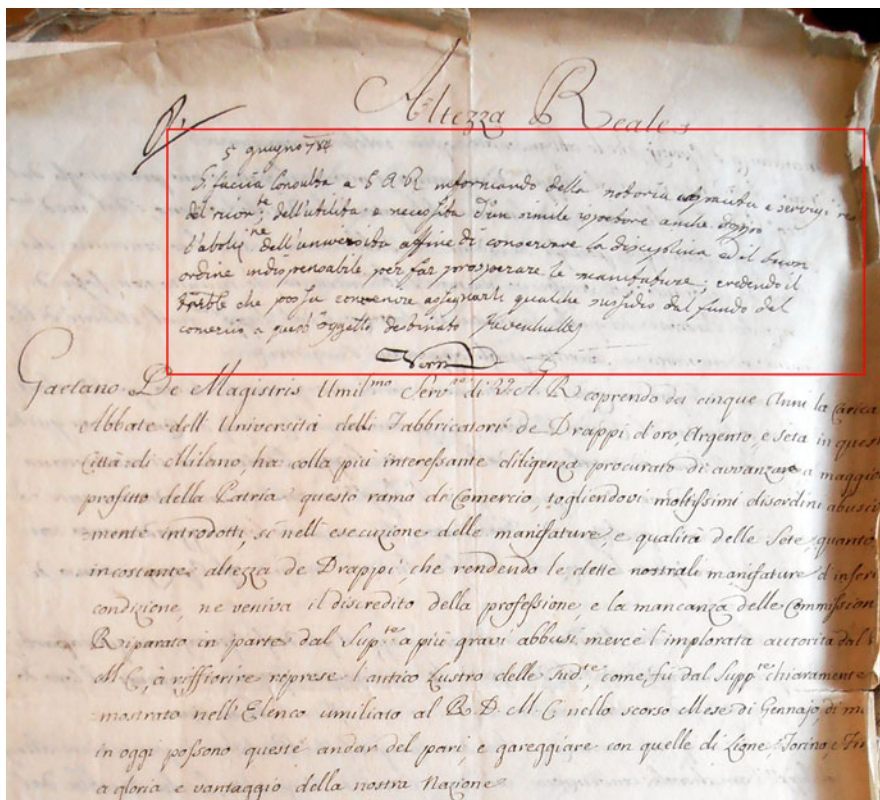 Altezza Reale
5 giugno 78
Si faccia Consulta a S A R informando della notoria e servigj
del ricorr.te, dell'utilità e necessità d'un simile ispettore anche doppo
l'aboliz.ne dell'università affine di conservare la disciplina ed il buon
ordine indispensabile per far prosperare le manifature; credendo il
che possa convenire assegnarli qualche sussidio dal fundo del
comercio a questo oggetto destinato
Verri
Gaetano De Magistris Umil.mo Serv.re di V. A. R coprendo da cinque Anni la Carica
Abbate dell Università delli Fabbricatori de Drappi d'oro, Argento, e Seta in quest
Città di Milano, ha colla più interessante diligenza procurato di avvanzare a maggior
profitto della Patria questo ramo de Comercio, togliendovi moltissimi disordini abusiv
-mente introdotti, sì nell'esecuzione delle manifature, e qualità delle Sete, quanto
incostante altezza de Drappi, che rendendo le dette nostrali manifature d'inferi
condizione, ne veniva il discredito della professione, e la mancanza delle Commission
Riparato in parte dal Sup.te a più gravi abbusi mercè l'implorata autorità dal
M. C., à riffiorire riprese l'antico Lustro delle Sud.te, come fù dal Supp.te chiaramente
mostrato nell'Elenco umiliato al R. D. M. C. nello scorso Mese di Gennajo, di m
in oggi possono queste andar del pari, e gareggiare con quelle di Lione, Torino, e Fir
a gloria e vantaggio della nostra Nazione